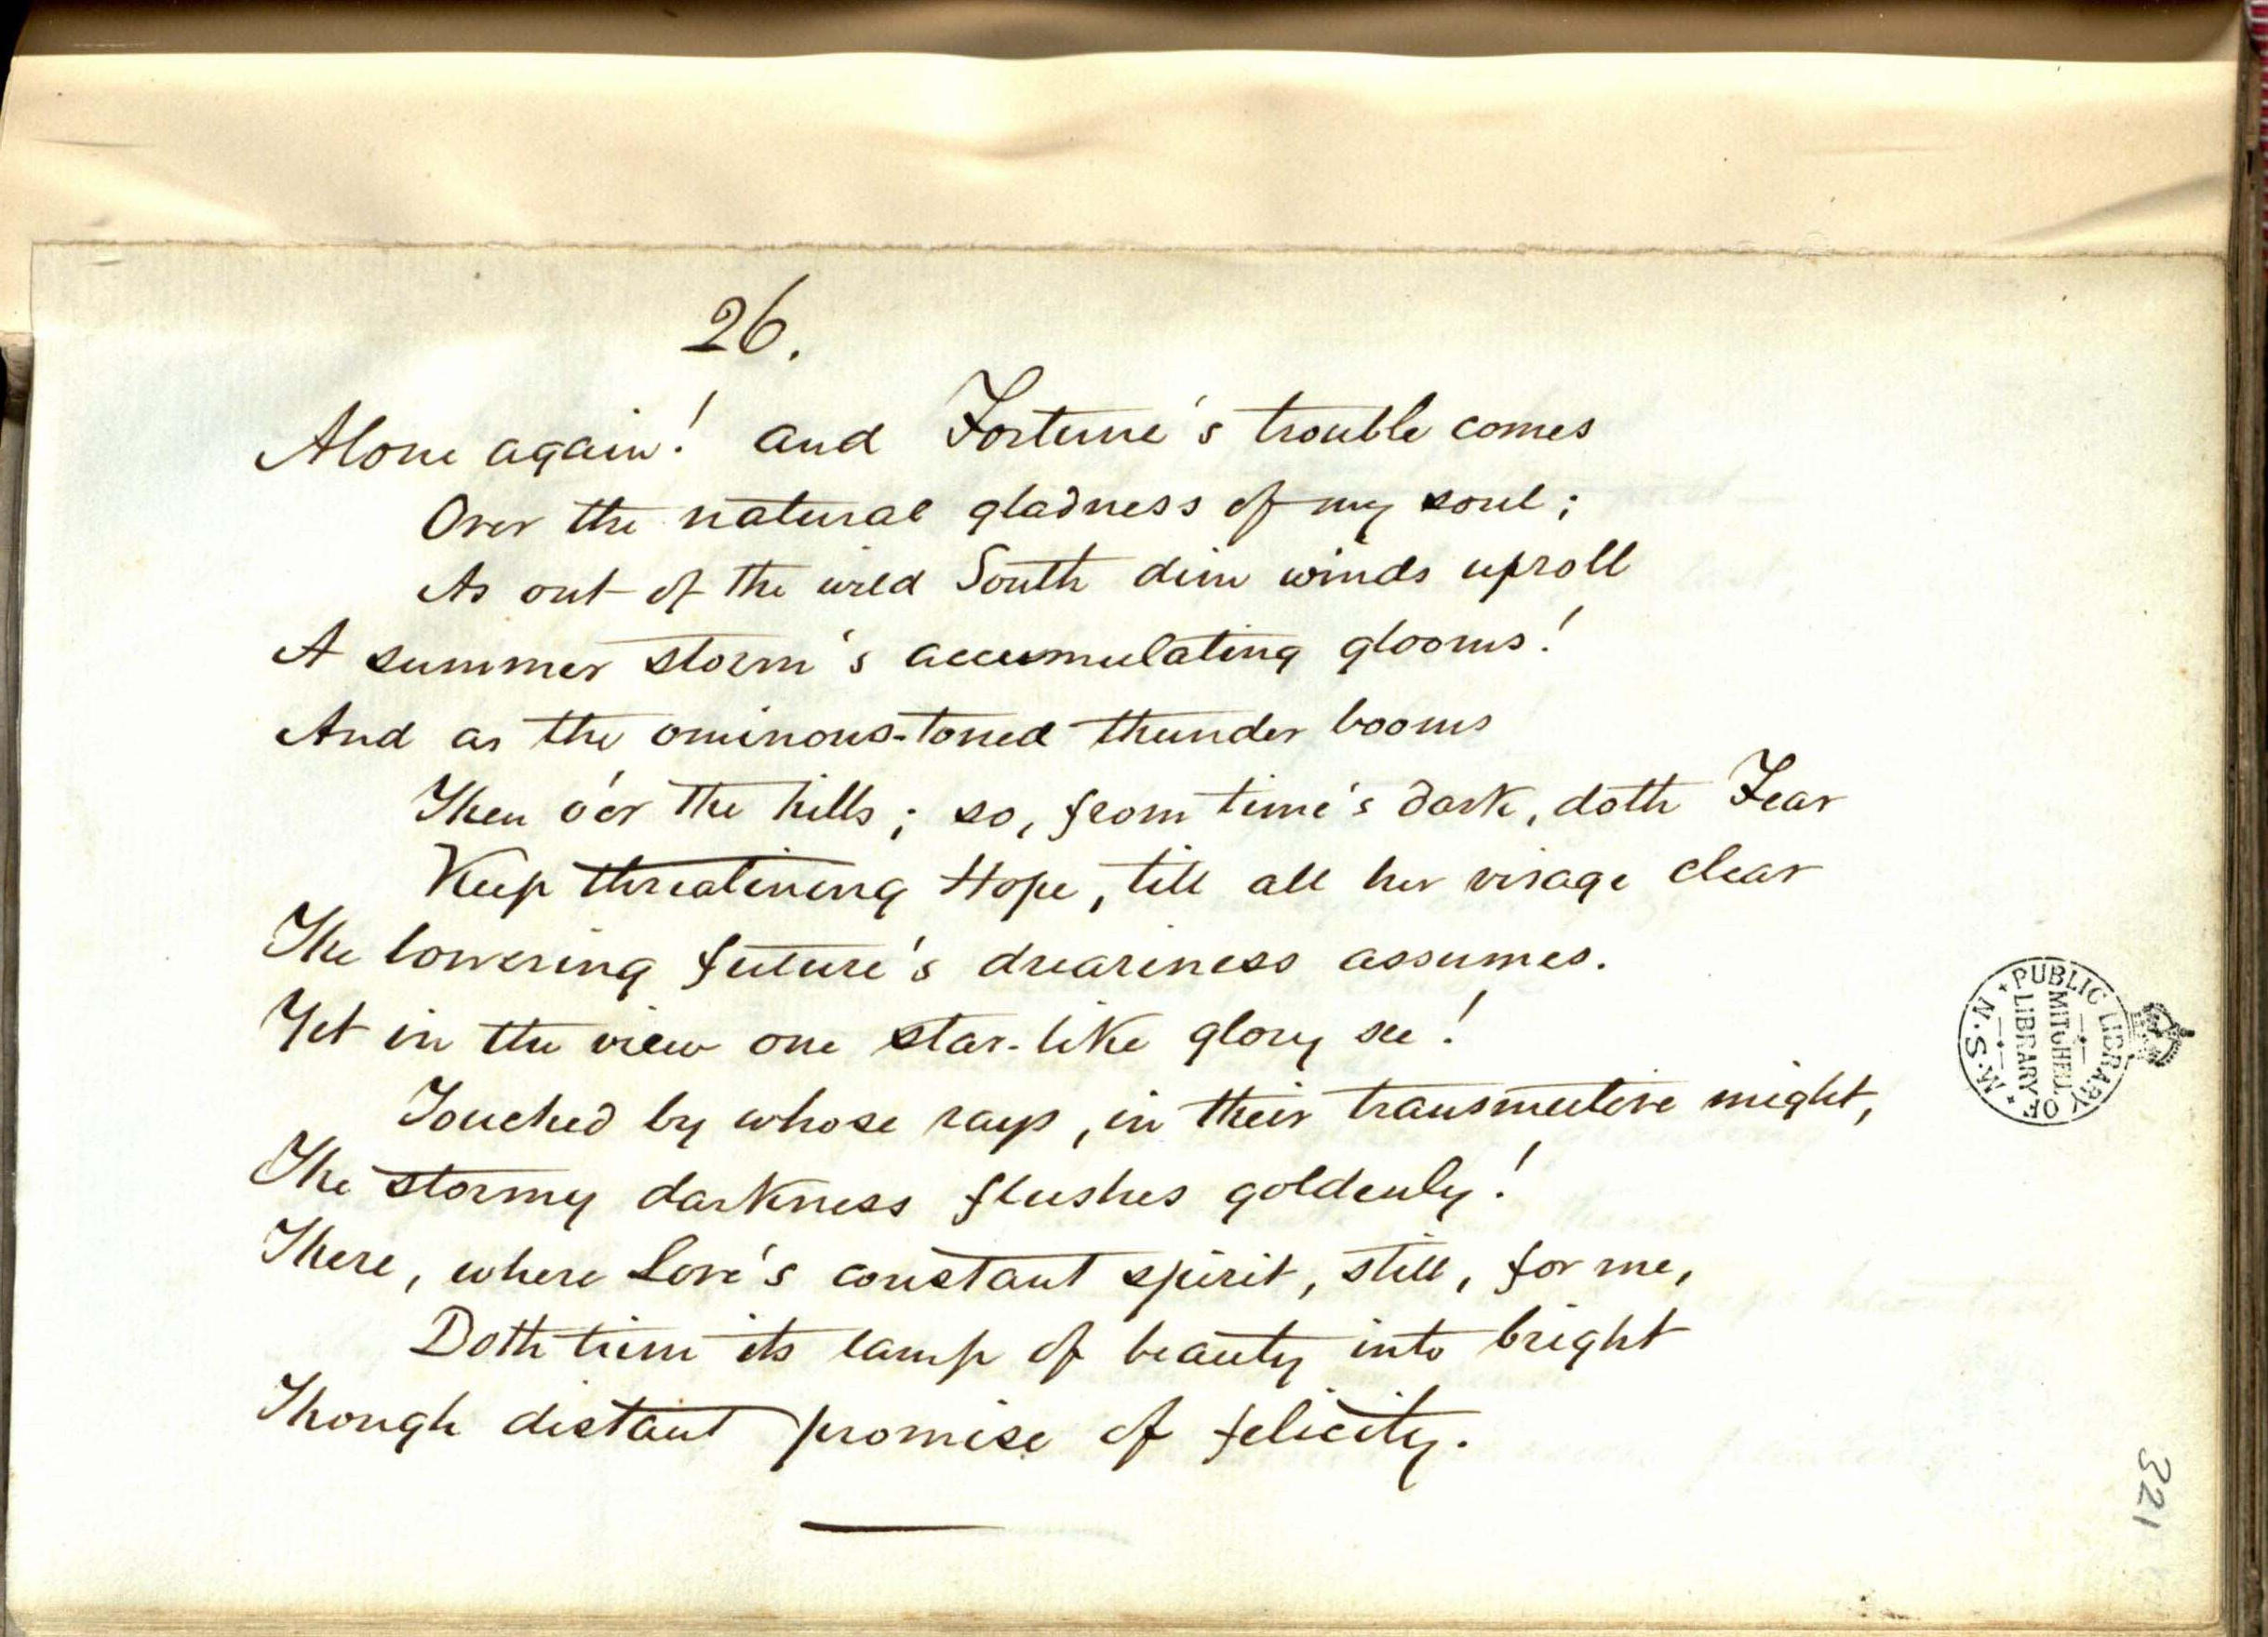 26.
Alone again! and Fortune's trouble comes
Over the natural gladness of my soul;
As out of the wild South dim winds uproll
A summer storm's accumulating glooms!
And as the ominous-toned thunder booms
Then o'er the hills; so, from time's dark, doth Fear
Keep threatining Hope, till all her visage clear
The lowering future's dreariness assumes.
Yet in the view one star-like glory see!
Touched by whose rays, in their transmutive might,
The stormy darkness flushes goldenly!
There, where Love's constant spirit, still, for me,
Doth trim its lamp of beauty into bright
Though distant promise of felicity.
PUBLIC LIBRARY OF N.S.W.
MITCHELL
LIBRARY
321